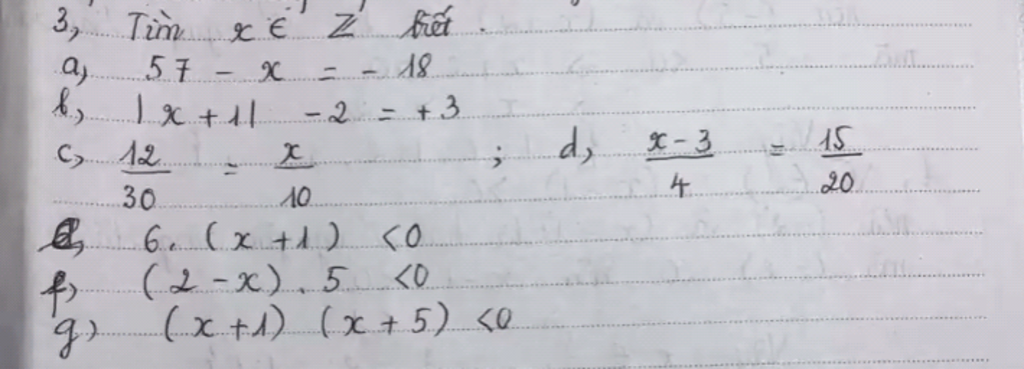 3, Tìm x ∈ Z biết.
a, 57 - x = - 18
b, |x + 1| - 2 = + 3
c, 12/30 = x/10 ; d, x - 3/4 = 15/20
e, 6. (x + 1) < 0
f, (2 - x) . 5 < 0
g) (x + 1) (x + 5) < 0